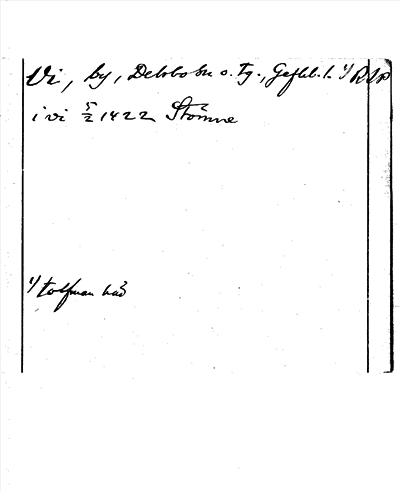 Vi, by, Delsbo sn o. tg., Gefleb. l. 1/ RAP
i vi 5/2 1422 Stömne
1/ tolfman had